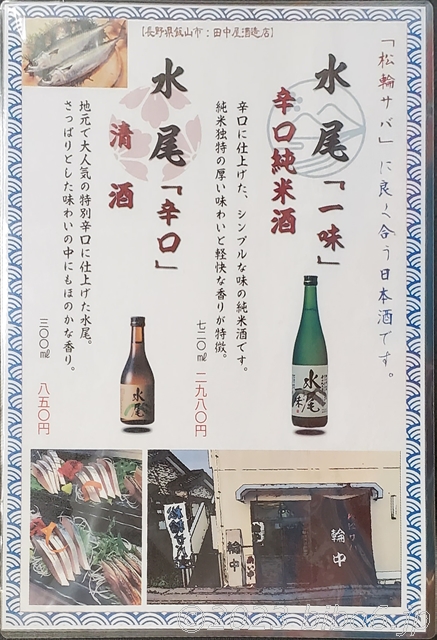 【長野県飯山市：田中屋酒造店】
「松輪サバ」に良く合う日本酒です。
水尾「一味」
辛口純米酒
辛口に仕上げた、シンプルな味の純米酒です。
純米独特の厚い味わいと軽快な香りが特徴。
七二〇㎖ 二九八〇円
水尾「辛口」
清酒
地元で大人気の特別辛口に仕上げた水尾。
さっぱりとした味わいの中にもほのかな香り。
三〇〇㎖ 八五〇円
水尾
水尾
一味
輪中
輪中